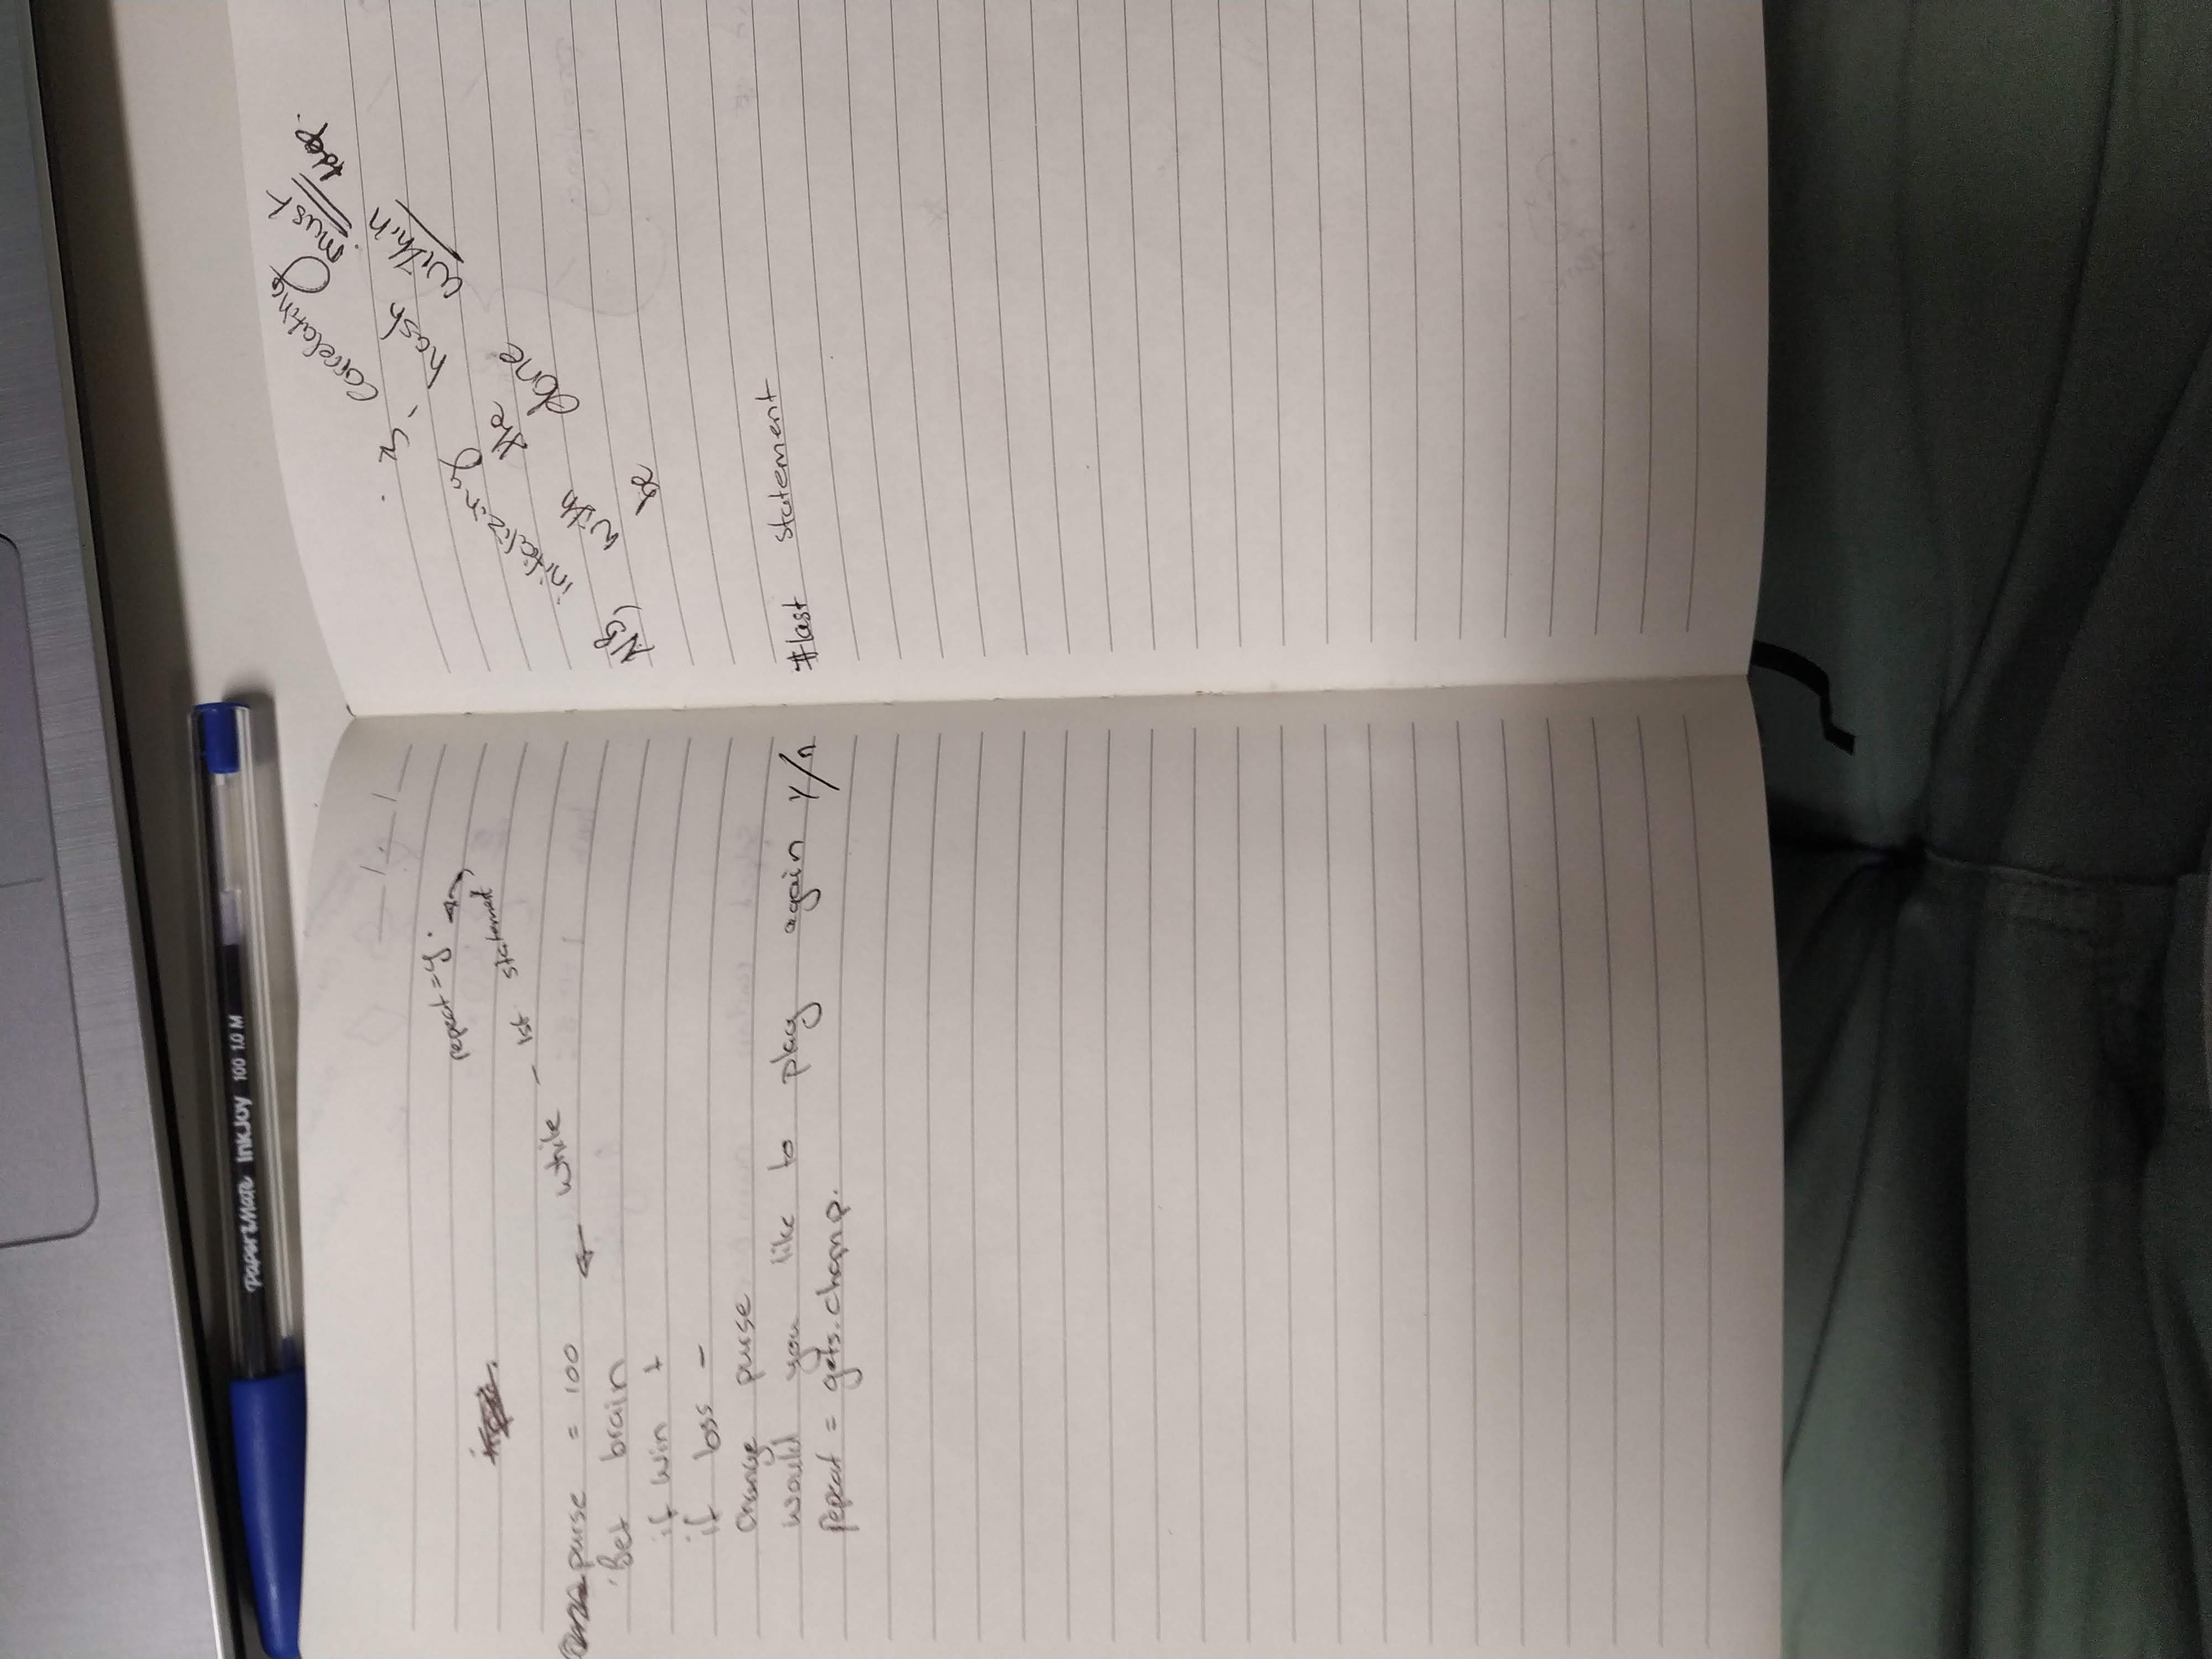 PaperMate InkJoy 100 1.0 M
repeat = y.
while - 1st statement
purse = 100
Bet brain
if win +
if loss -
change purse
would you like to play again y/n
repeat = gets.chomp.
NB, initializing & correlating
with the hash must
be done within
#last statement